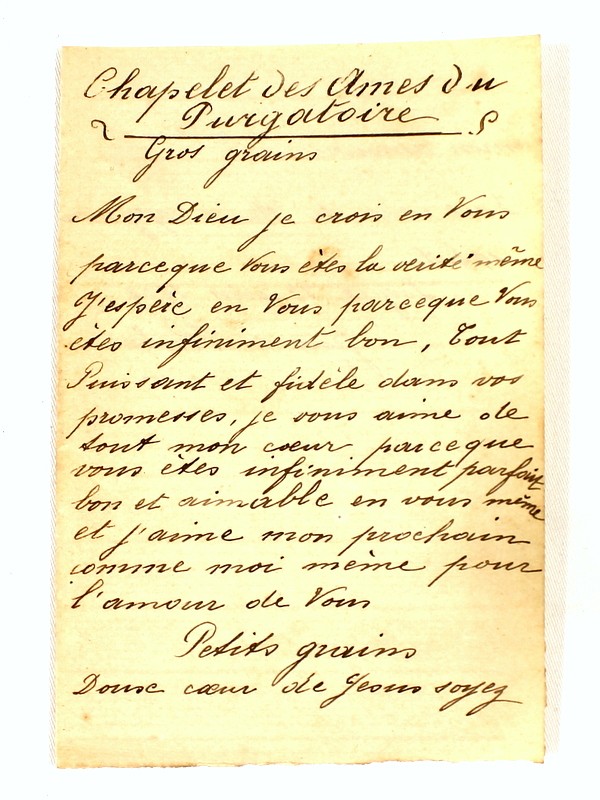 Chapelet des Ames du
Purgatoire
Gros grains
Mon Dieu je crois en Vous
parceque Vous êtes la verité même
J'espère en Vous parceque Vous
êtes infiniment bon, Tout
Puissant et fidèle dans vos
promesses, je vous aime de
tout mon cœur parceque
vous êtes infiniment parfait
bon et aimable en vous même
et j'aime mon prochain
comme moi même pour
l'amour de Vous
Petits grains
Doux cœur de Jesus soyez